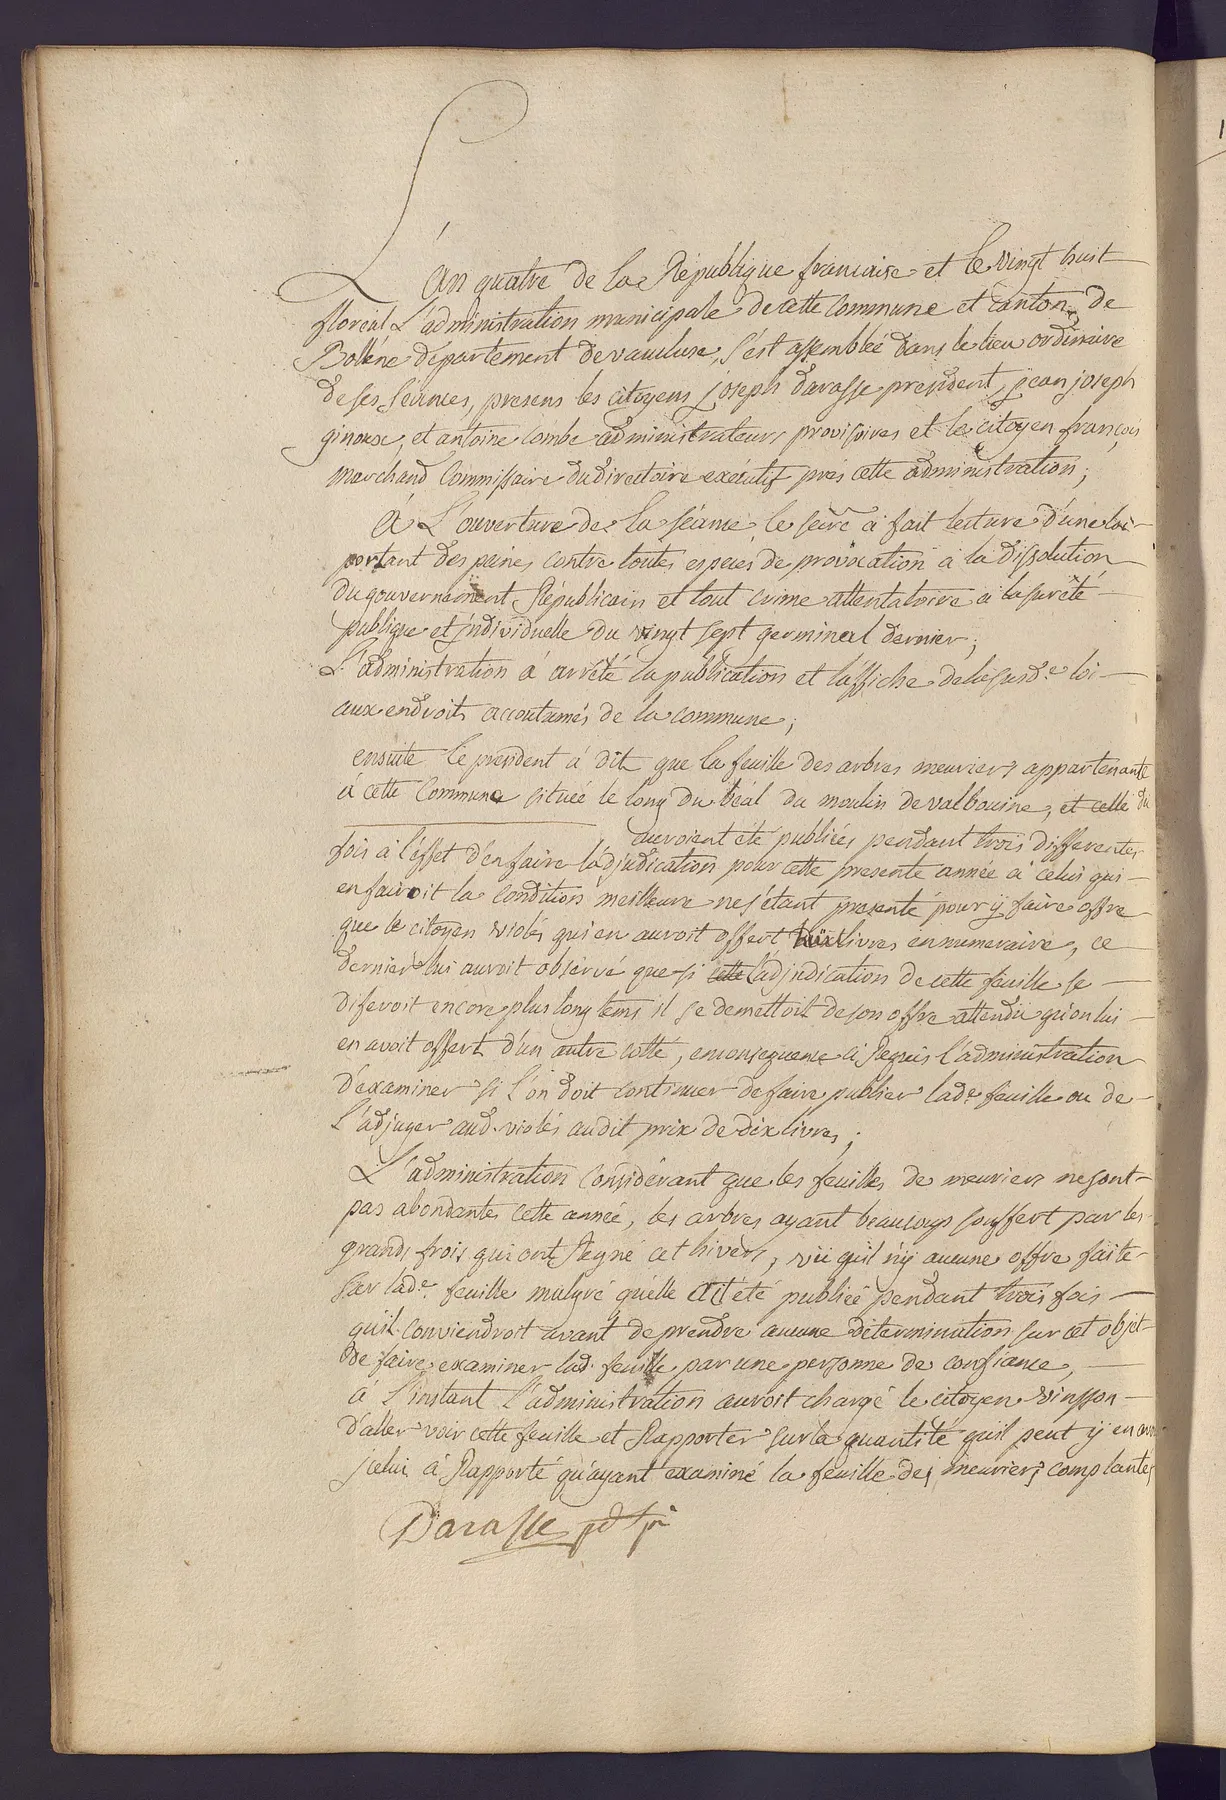 L'An quatre de la République francaise et le vingt huit
floreal L'administration municipale de cette Commune et canton de
Bollène département de vaucluse, s'est assemblée dans le lieu ordinaire
de ses séances, presens les citoyens joseph darasse president, jean joseph
ginoux, et antoine combe administrateurs provisoires et le citoyen françois
marchand Commissaire du directoire exécutif près cette administration;
A L'ouverture de la séance, le secre à fait lecture d'une loi
portant des peines contre toutes especes de provocation à la dissolution
du gouvernement Républicain et tout crime attentatoire à la sureté
publique et individuelle du vingt sept germinal dernier;
L'administration à arrêté la publication et l'affiche de la susde loi
aux endroits accoutumés de la commune;
ensuite le president à dit que la feuille des arbres meuriers appartenante
à cette Commune située le long du béal du moulin de valbouine, et celle du
auroient été publiées pendant trois differentes
fois à l'effet d'en faire l'adjudication pour cette presente année à celui qui
en fairoit la condition meilleure ne s'étant presenté pour ÿ faire offre
que le citoyen violés qui en auroit offert dix livres en numeraire, ce
dernier lui auroit observé que si cette l'adjudication de cette feuille se
diferoit encore plus long tems il se demettoit de son offre attendu qu'on lui
en avoit offert d'un autre cotté, en consequence à Requis l'administration
d'examiner si l'on doit continuer de faire publier lade feuille ou de
l'adjuger aud. violés audit prix de dix livres;
L'administration Considerant que les feuilles de meuriers ne sont
pas abondantes cette année, les arbres ayant beaucoup souffert par les
grands frois qui ont Regné cet hivers, vû qu'il n'ÿ aucune offre faite
sur lade feuille malgré qu'elle ait été publiée pendant trois fois
qu'il conviendroit avant de prendre aucune détermination sur cet objet
de faire examiner lad. feuille par une personne de confiance,
à l'instant l'administration auroit chargé le citoyen vinsson
d'aller voir cette feuille et Rapporter sur la quantité qu'il peut ÿ en avoir
icelui à Rapporté qu'ayant examiné la feuille des meuriers complantés
Darasse pdt